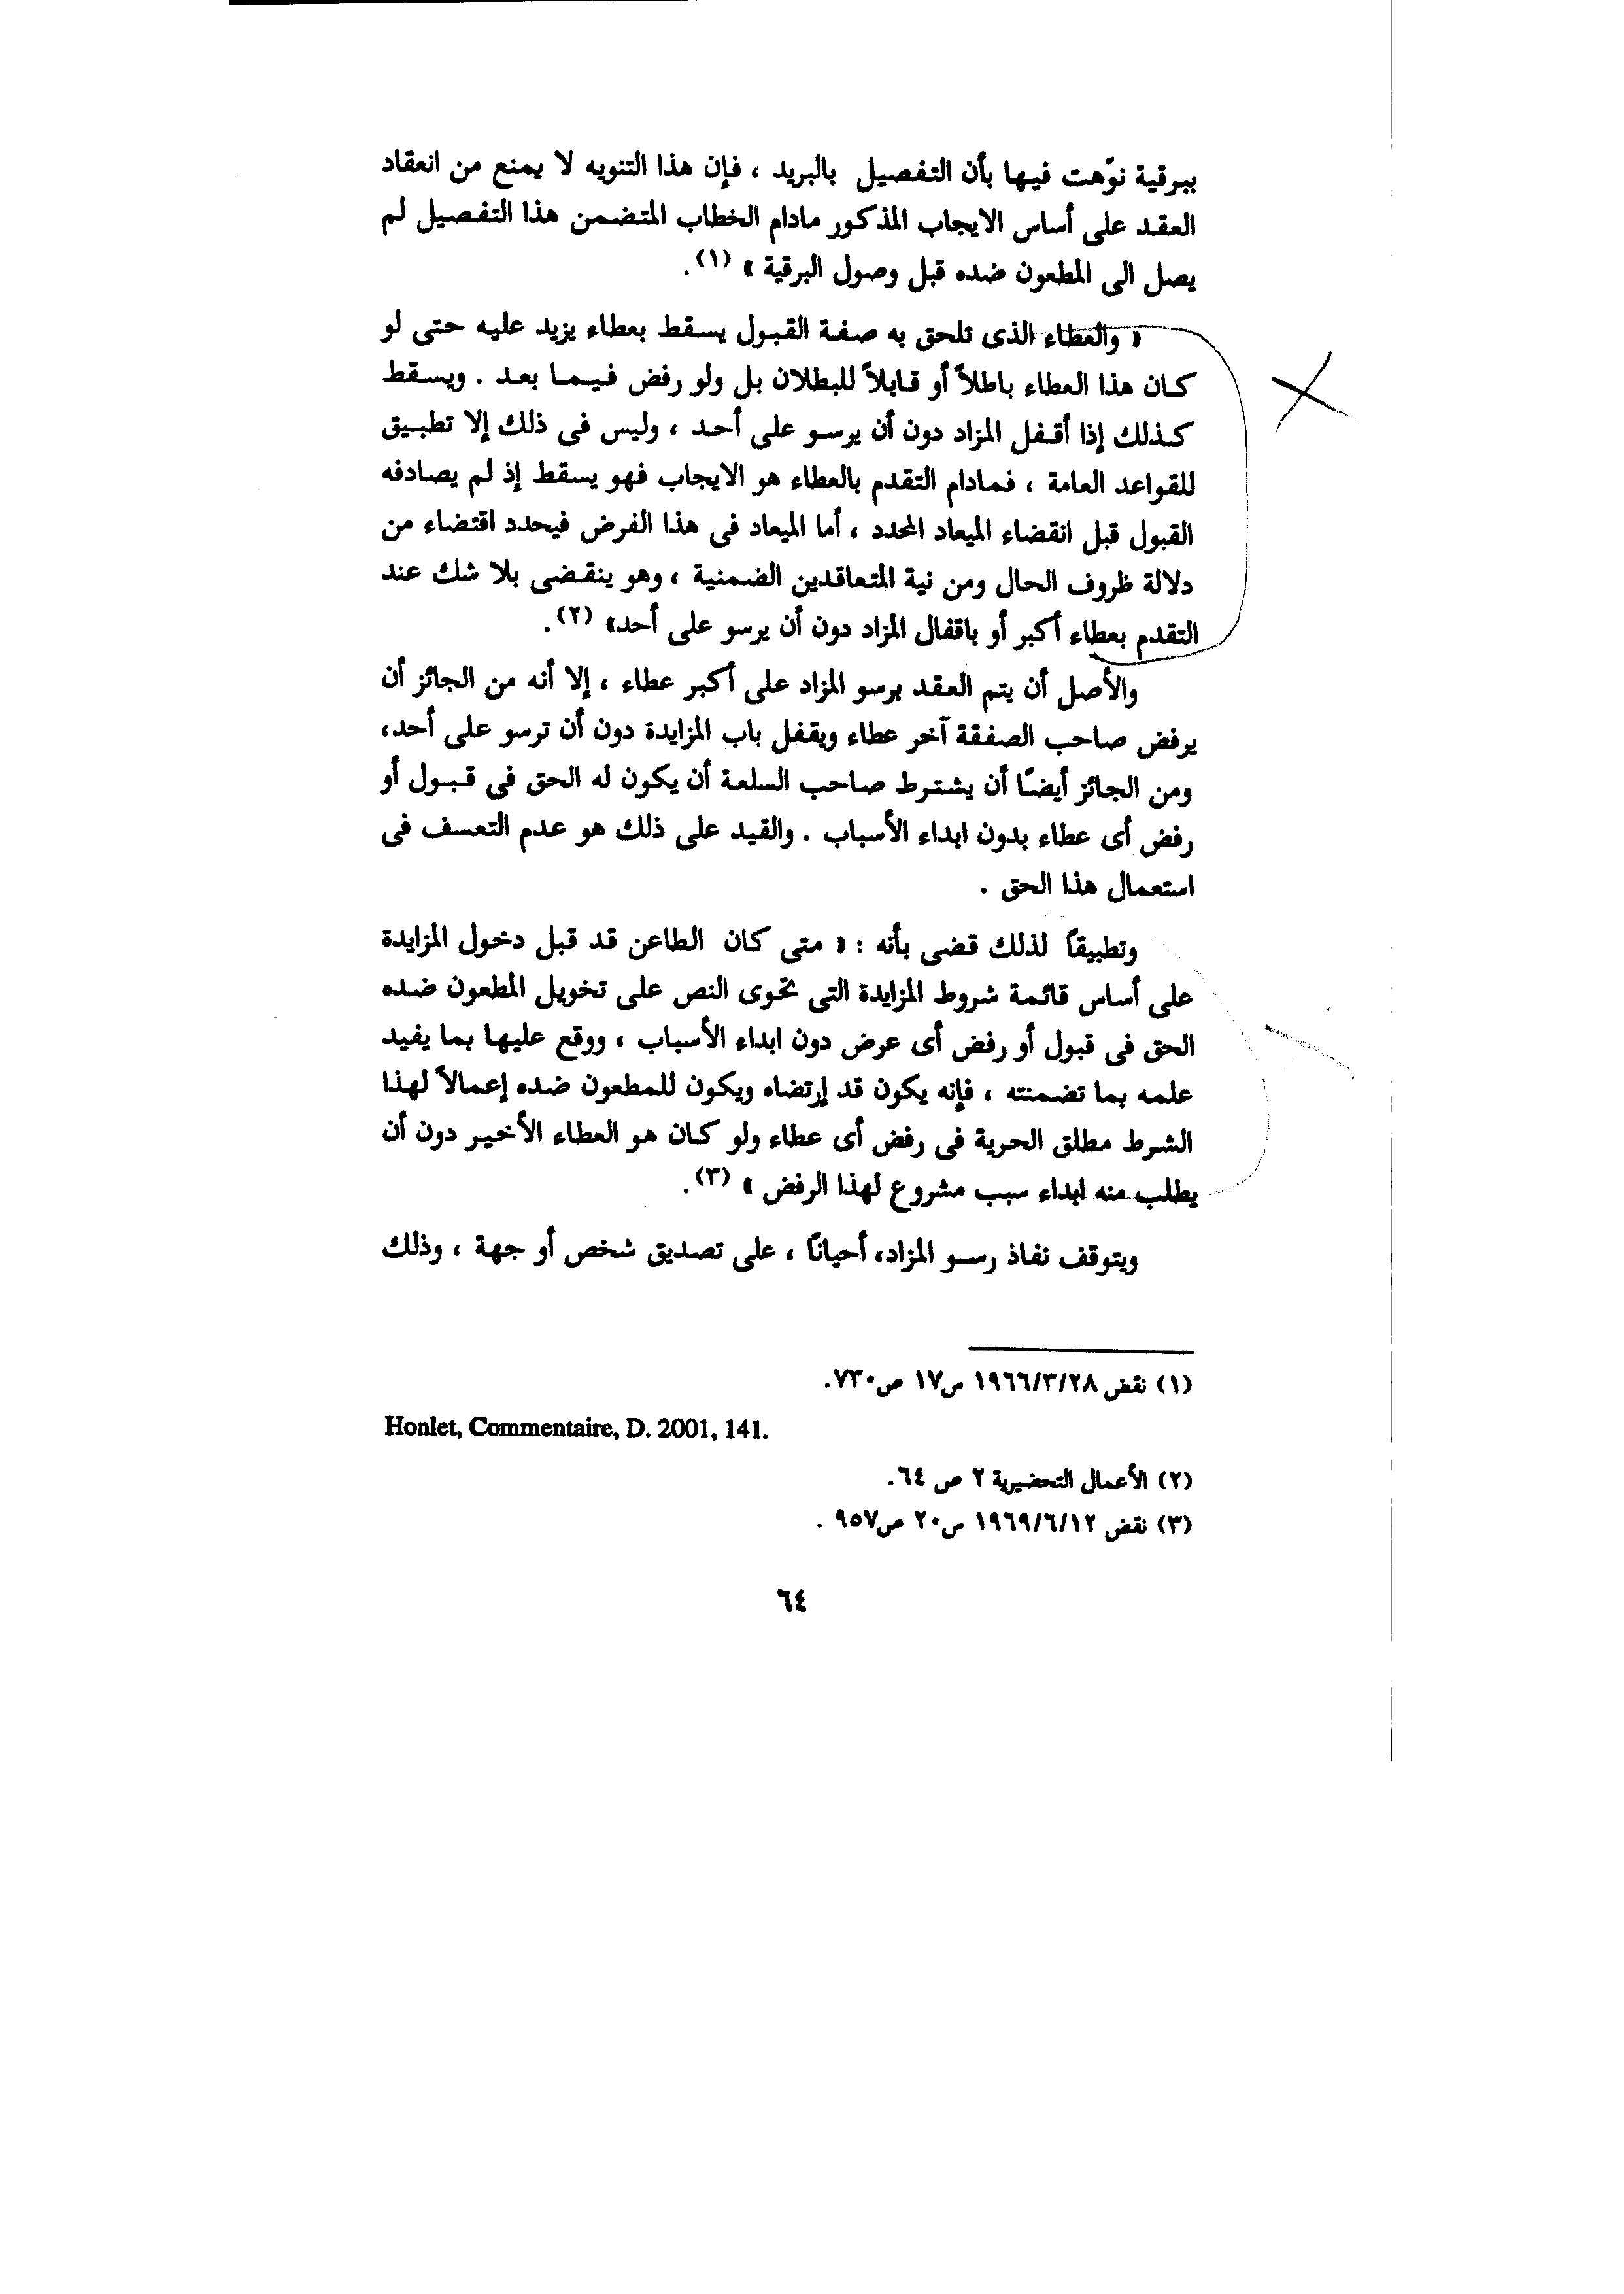 ببرقية نوّهت فيها بأن التفصيل بالبريد ، فإن هذا التنويه لا يمنع من انعقاد
العقد على أساس الايجاب المذكور مادام الخطاب المتضمن هذا التفصيل لم
يصل الى المطعون ضده قبل وصول البرقية » (١).
« والعطاء الذى تلحق به صفة القبول يسقط بعطاء يزيد عليه حتى لو
كان هذا العطاء باطلاً أو قابلاً للبطلان بل ولو رفض فيما بعد . ويسقط
كذلك إذا أقفل المزاد دون أن يرسو على أحد ، وليس فى ذلك إلا تطبيق
للقواعد العامة ، فمادام التقدم بالعطاء هو الايجاب فهو يسقط إذ لم يصادفه
القبول قبل انقضاء الميعاد المحدد ، أما الميعاد فى هذا الفرض فيحدد اقتضاء من
دلالة ظروف الحال ومن نية المتعاقدين الضمنية ، وهو ينقضى بلا شك عند
التقدم بعطاء أكبر أو باقفال المزاد دون أن يرسو على أحد» (٢).
والأصل أن يتم العقد برسو المزاد على أكبر عطاء ، إلا أنه من الجائز أن
يرفض صاحب الصفقة آخر عطاء ويقفل باب المزايدة دون أن ترسو على أحد،
ومن الجائز أيضًا أن يشترط صاحب السلعة أن يكون له الحق فى قبول أو
رفض أى عطاء بدون ابداء الأسباب . والقيد على ذلك هو عدم التعسف فى
استعمال هذا الحق .
وتطبيقاً لذلك قضى بأنه : « متى كان الطاعن قد قبل دخول المزايدة
على أساس قائمة شروط المزايدة التى تحوى النص على تخويل المطعون ضده
الحق فى قبول أو رفض أى عرض دون ابداء الأسباب ، ووقع عليها بما يفيد
علمه بما تضمنته ، فإنه يكون قد إرتضاه ويكون للمطعون ضده إعمالاً لهذا
الشرط مطلق الحرية فى رفض أى عطاء ولو كان هو العطاء الأخير دون أن
يطلب منه ابداء سبب مشروع لهذا الرفض » (٣).
ويتوقف نفاذ رسو المزاد، أحيانًا ، على تصديق شخص أو جهة ، وذلك
(١) نقض ١٩٦٦/٣/٢٨ س١٧ ص٧٣٠.
Honlet, Commentaire, D. 2001, 141.
(٢) الأعمال التحضيرية ٢ ص ٦٤.
(٣) نقض ١٩٦٩/٦/١٢ س٢٠ ص٩٥٧ .
٦٤